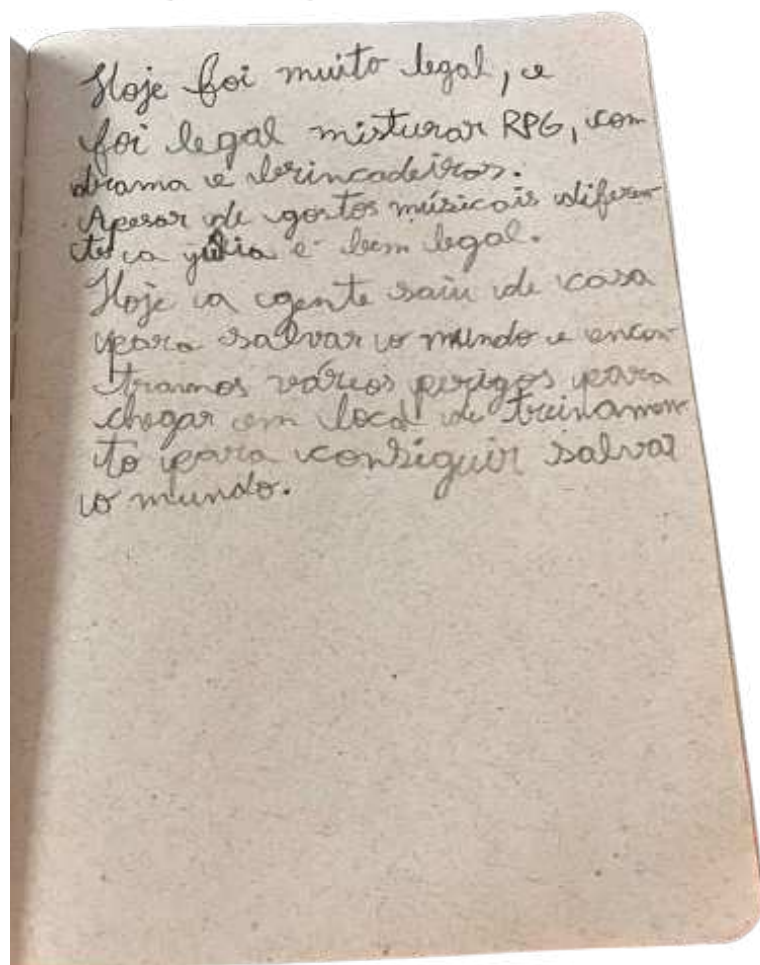 Hoje foi muito legal, e
foi legal misturar RPG, com
drama e brincadeiras.
Apesar de gostos músicais diferen-
tes a júlia é bem legal.
Hoje a gente saiu de casa
para salvar o mundo e encon-
tramos vários perigos para
chegar em local de treinamen-
to para conseguir salvar
o mundo.